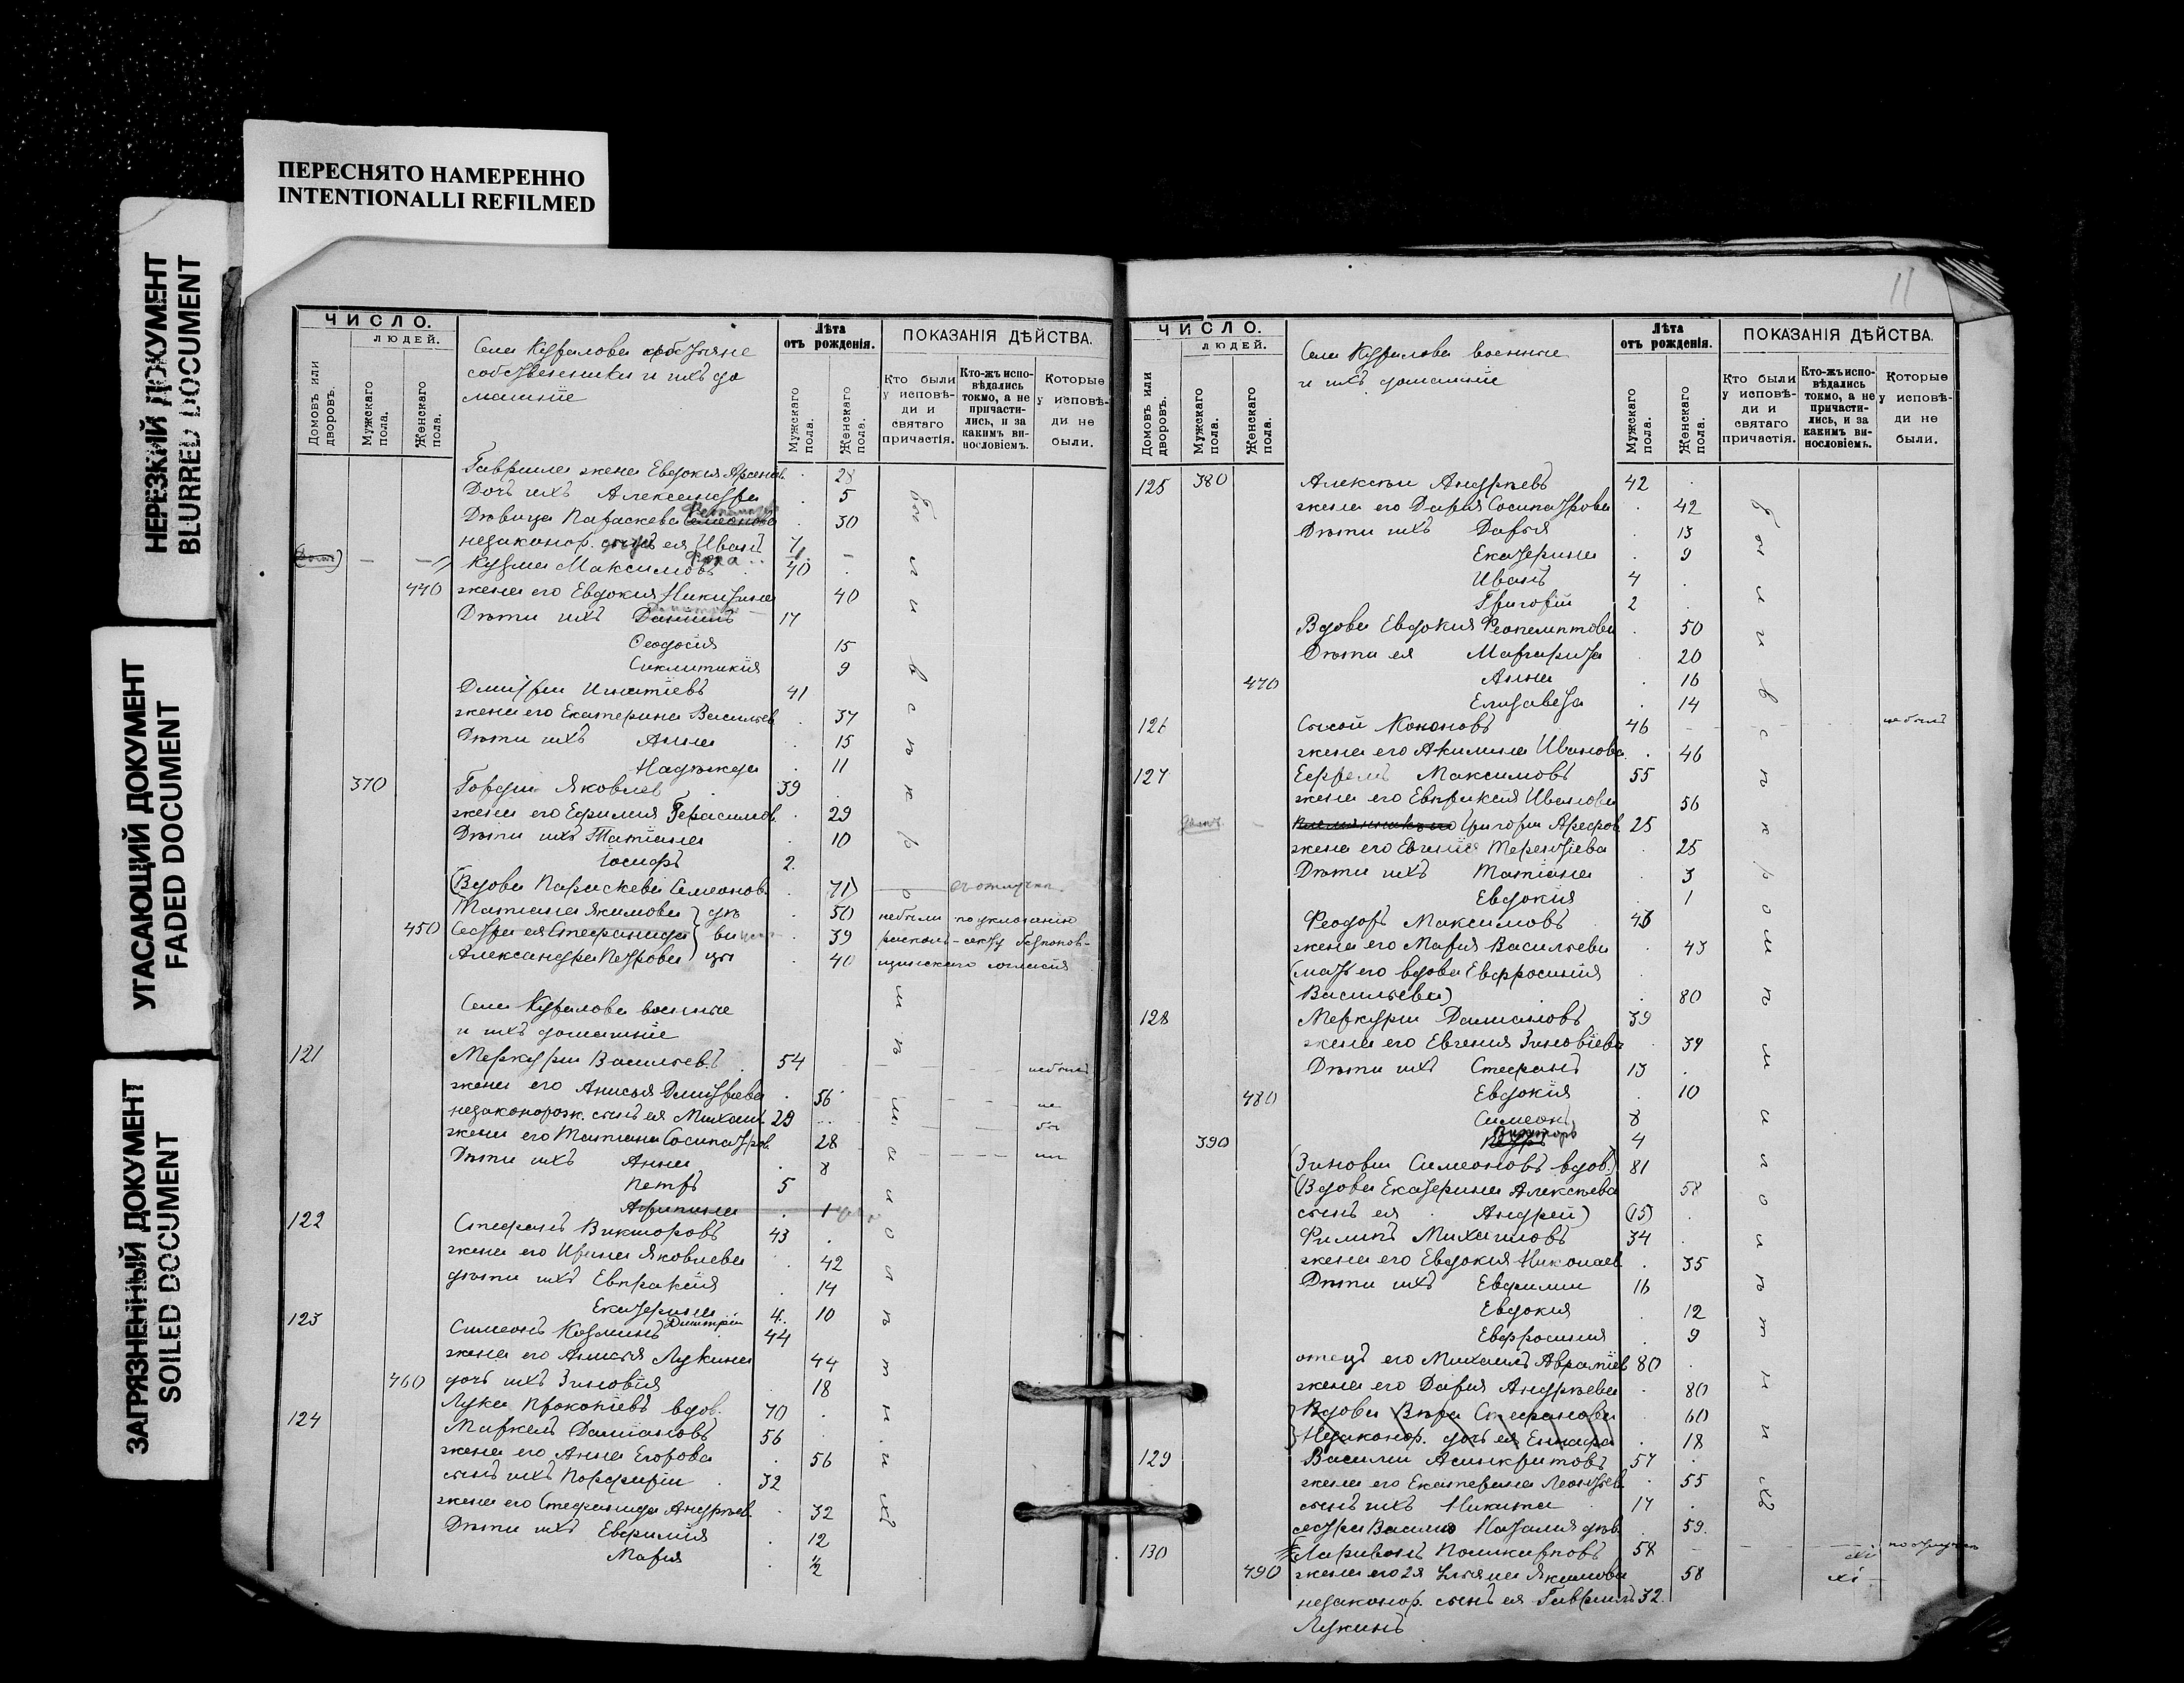 ПЕРЕСНЯТО НАМЕРЕННО
INTENTIONALLI REFILMED
НЕРЕЗКИЙ ДОКУМЕНТ
BLURRED DOCUMENT
УГАСАЮЩИЙ ДОКУМЕНТ
FADED DOCUMENT
ЗАГРЯЗНЕННЫЙ ДОКУМЕНТ
SOILED DOCUMENT
ЧИСЛО.
ЛЮДЕЙ.
Домовъ или дворовъ.
Мужскаго пола.
Женскаго пола.
Лѣта отъ рожденія.
Мужскаго пола.
Женскаго пола.
ПОКАЗАНІЯ ДѢЙСТВА.
Кто были у исповѣди и святаго причастія.
Кто-жъ исповѣдались токмо, а не причастились, и за какимъ винословіемъ.
Которые у исповѣди не были.
собственники и ихъ до
машніе
Гавриила жена Евдокия Арсеньев 28
Дочь ихъ Александра 5
Дѣвица Параскева 30
незаконор. сынъ ея Иванъ 7
Кузма Максимовъ 40
440 жена его Евдокия Никитина 40
Дѣти ихъ 17
Феодосия 15
Синклитикия 9
Димитрии Игнатіевъ 41
жена его Екатерина Васильев 37
Дѣти ихъ Анна 15
Надежда 11
370 Гордии Яковлев 39
жена его Ефимия Герасимов. 29
Дѣти ихъ Татиана 10
Іосифъ 2.
(Вдова Параскева Симеонов. 71)
Татиана Якимова 50 небыли по уклонению
450 Сестра ея Стефанида 39
Александра Петрова 40
и ихъ домашніе
121 Меркурии Васильевъ 54 небылъ
жена его Анисья Дмитриева 56
незаконорож. сынъ ея Михаил 29
жена его Татиана Сосипатров. 28
Дѣти ихъ Анна 8
Петръ 5
Агрипина 1
122 Стефанъ Викторовъ 43
жена его Ирина Яковлева 42
дѣти ихъ Евпраксия 14
Екатерина 10
Димитрии 4.
123 Симеонъ Козминъ 44
жена его Анисья Лукина 44
460 дочь ихъ Зиновія 18
Лука Прокопіевъ вдов. 70
124 Маркелъ Даміановъ 56
жена его Анна Егорова 56
сынъ ихъ Порфирии 32
жена его Стефанида Андреев. 32
Дѣти ихъ Евфимия 12
Мария
11
ЧИСЛО.
ЛЮДЕЙ.
Домовъ или дворовъ.
Мужскаго пола.
Женскаго пола.
Лѣта отъ рожденія.
Мужскаго пола.
Женскаго пола.
ПОКАЗАНІЯ ДѢЙСТВА.
Кто были у исповѣди и святаго причастія.
Кто-жъ исповѣдались токмо, а не причастились, и за какимъ винословіемъ.
Которые у исповѣди не были.
и ихъ домашніе
125 380 Алексѣи Андрѣевъ 42
жена его Дарья Сосипатрова 42
Дѣти ихъ Дарья 13
Екатерина 9
Иванъ 4
Григорій 2
Вдова Евдокия Феопемптова 50
Дѣти ея Маргарита 20
470 Анна 16
Елизавета 14
126 Сысой Кононовъ 46 небылъ
жена его Акилина Иванова 46
127 Ефремъ Максимовъ 55
жена его Евпраксия Иванова 56
Григорий Арефов 25
жена его Евгения Терентіева 25
Дѣти ихъ Татиана 3
Евдокия 1
Феодоръ Максимовъ
жена его Мария Васильева 43
(мать его вдова Евфросиния
Васильева) 80
128 Меркурии Даміановъ 39
жена его Евгения Зиновіева 39
Дѣти ихъ Стефанъ 13
480 Евдокия 10
Симеонъ 8
390 Викторъ 4
(Зиновии Симеоновъ вдов.) 81
(Вдова Екатерина Алексѣева 58
сынъ ея Андрей) (15)
Филипъ Михаиловъ 34
жена его Евдокия Николаев. 35
Дѣти ихъ Евфимии 16
Евдокия 12
Евфросиния 9
отецъ его Михаилъ Аврамиев 80
жена его Дария Андрѣева 80
Вдова Вѣра Стефанова 60
Незаконор. дочь ея 18
129 Василии Асинкритовъ 57
жена его Екатерина Леонтьев. 55
сынъ ихъ Никита 17
сестра Васил. Наталия дѣв. 59.
130 Ларивонъ Поликарповъ 58
490 жена его 2я Ульяна Якимова 58
незаконор. сынъ ея Гавриилъ 32.
Лукинъ